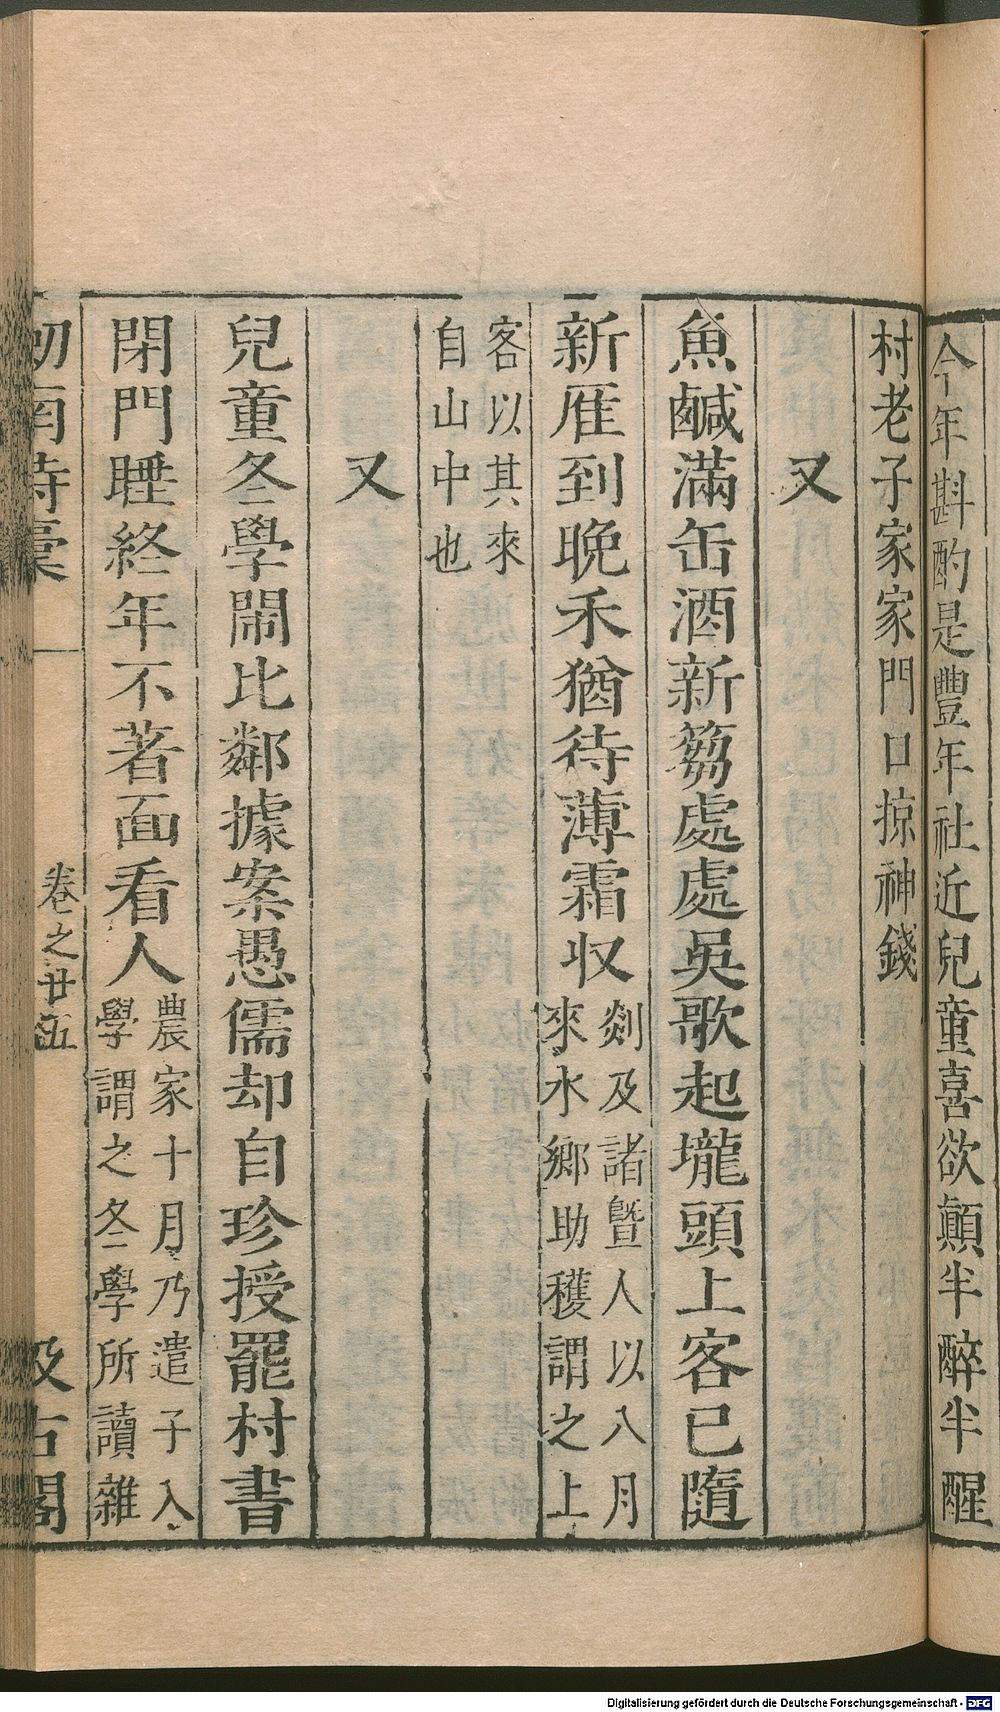 今年斟酌是豐年社近兒童喜欲顛半醉半醒
村老子家家門口掠神錢
又
魚鹹滿缶酒新篘處處吳歌起壠頭上客已隨
新雁到晚禾猶待薄霜收剡及諸曁人以八月
來水鄉助穫謂之上
客以其來
自山中也
又
兒童冬學鬧比鄰據案愚儒却自珍授罷村書
閉門睡終年不著面看人農家十月乃遣子入
學謂之冬學所讀雜
劒南詩稾
卷之廿五
汲古閣
Digitalisierung gefördert durch die Deutsche Forschungsgemeinschaft - DFG